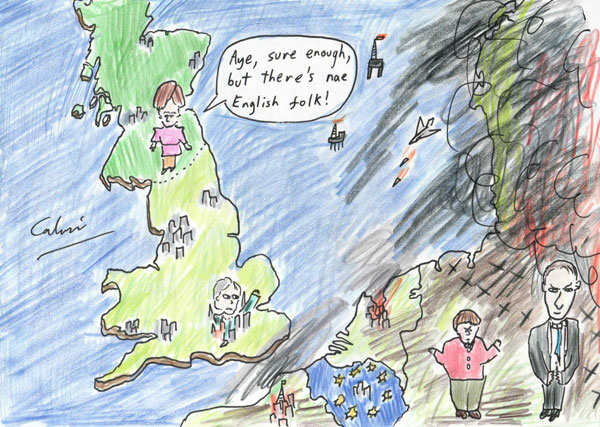 Aye, sure enough,
but there's nae
English folk!